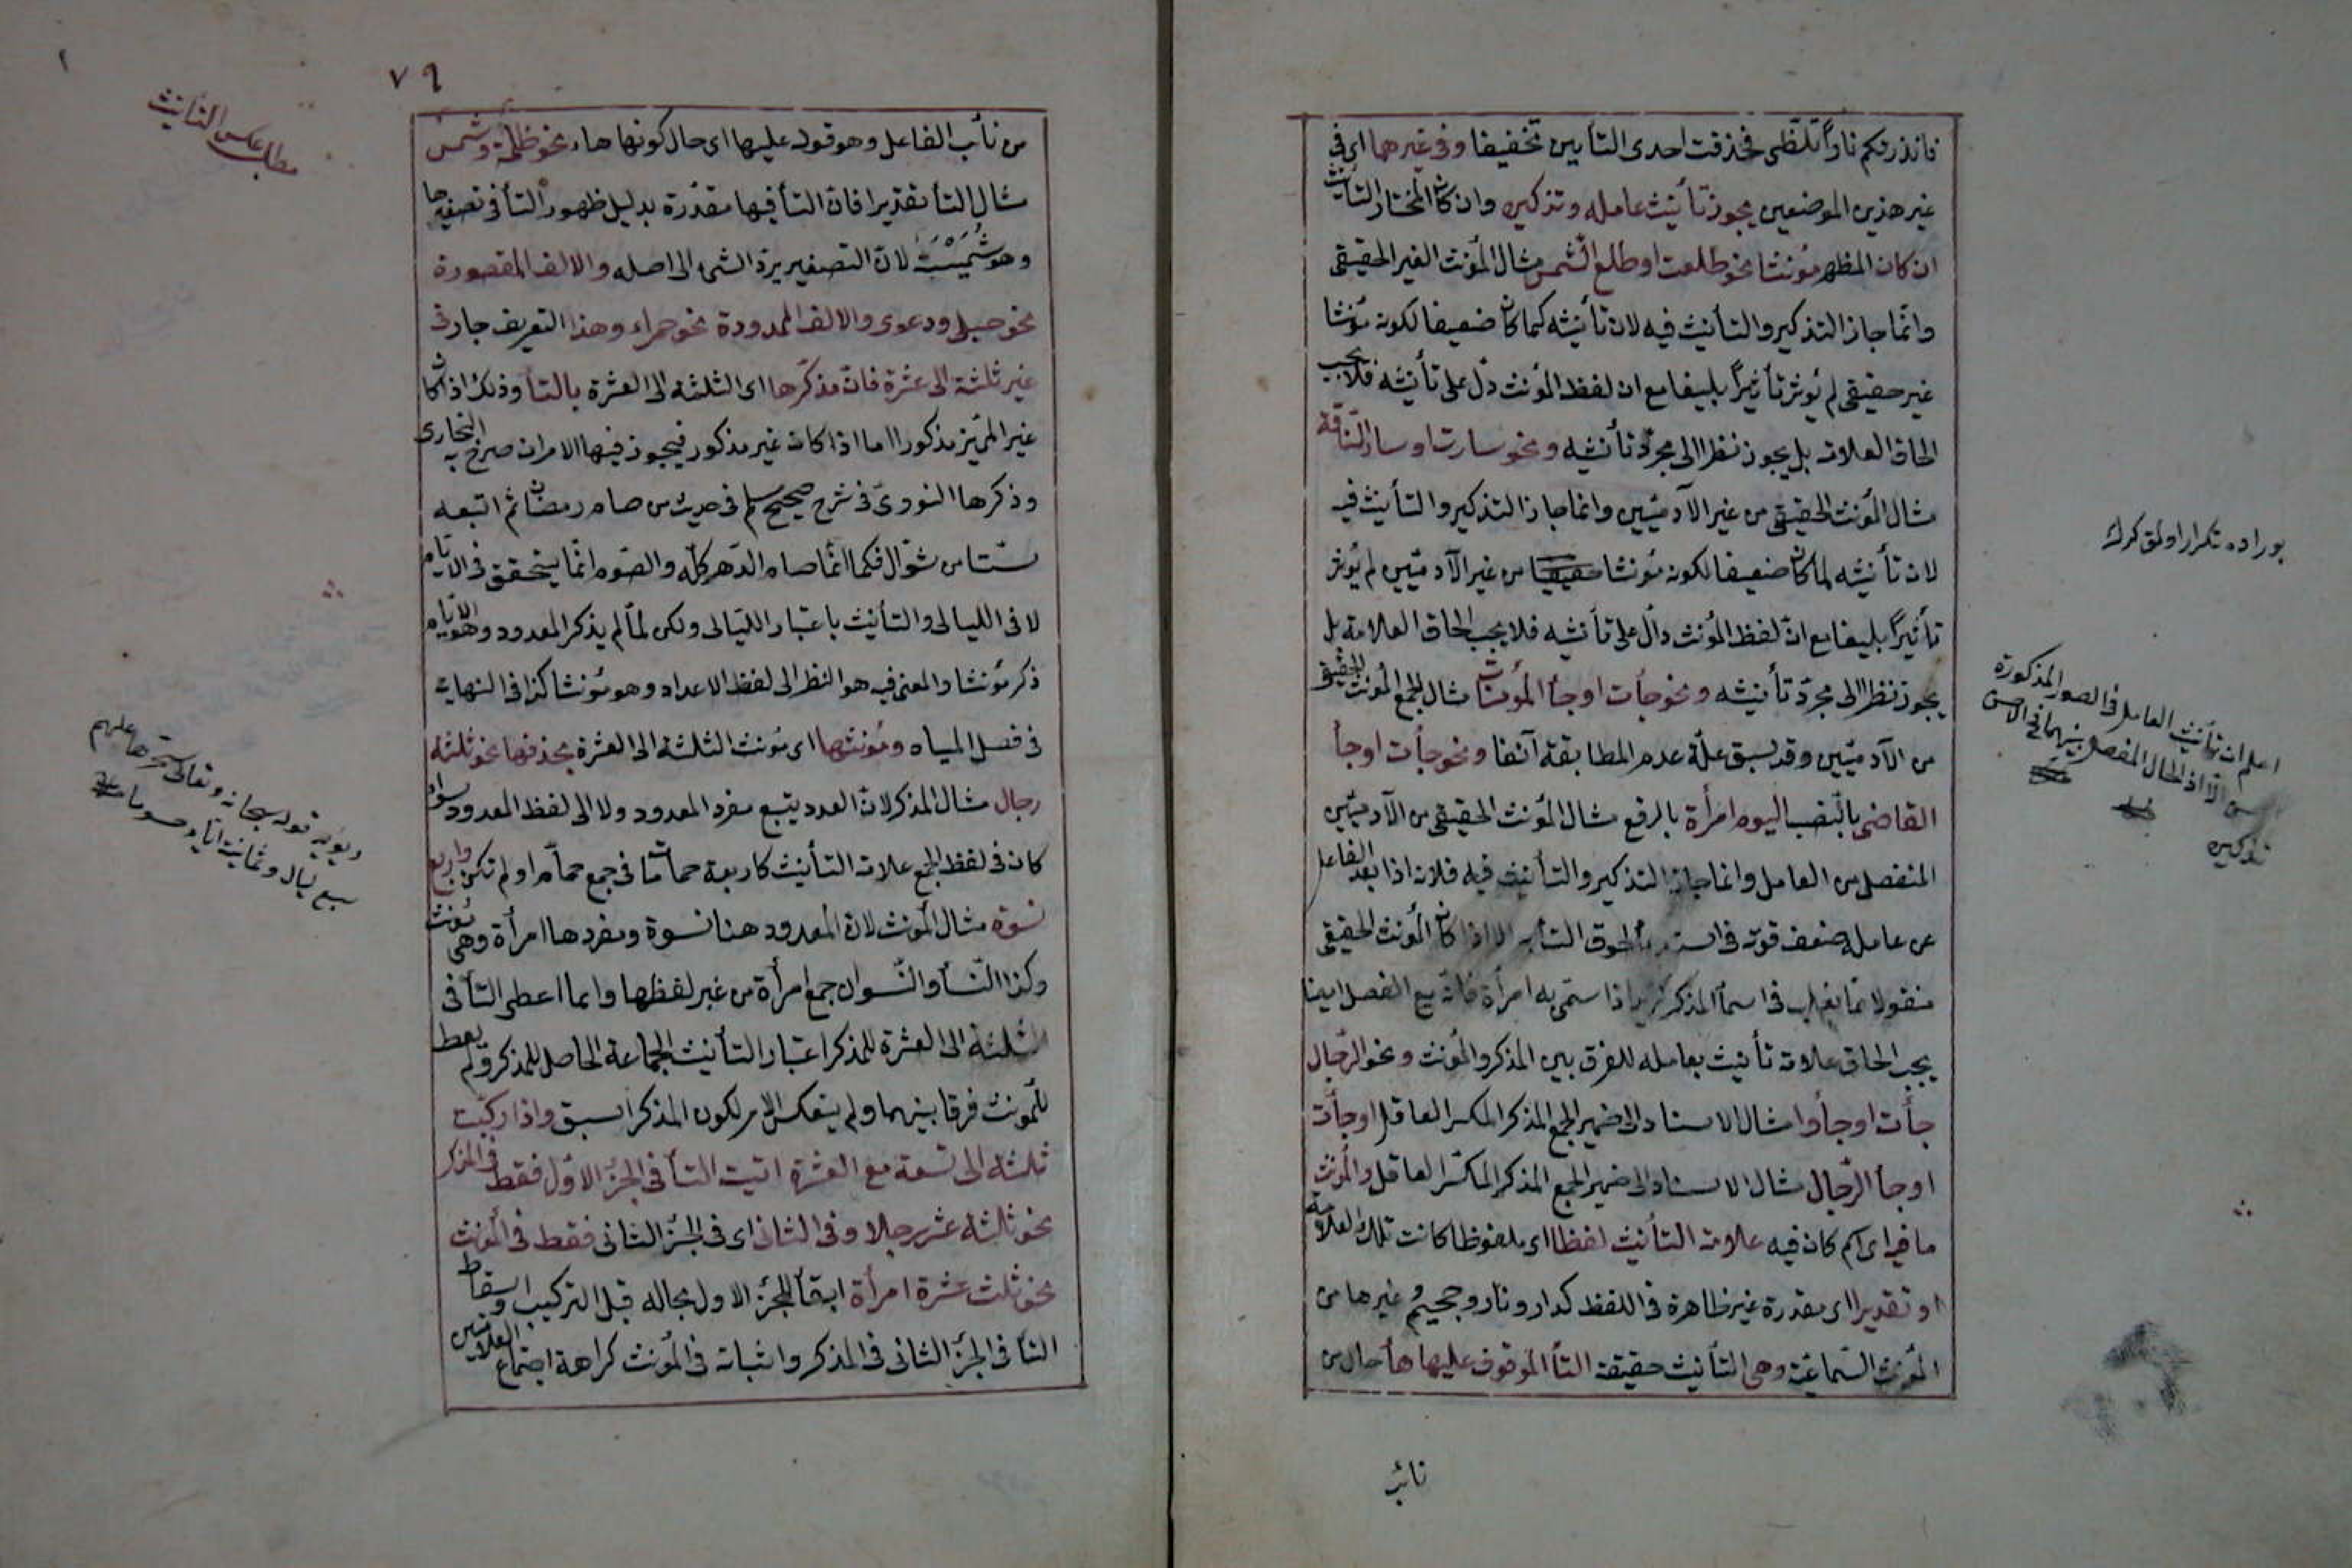 فانذرتكم ناراً تلظّى فحذفت احدى التأيين تخفيفا وفى غيرهما اى فى
غير هذين الموضعين يجوز تأنيث عامله وتذكيره وان كان المختار التأنيث
ان كان المظهر مؤنثا نحو طلعت او طلع الشمس مثال المؤنث الغير الحقيقى
وانّما جاز التذكير والتأنيث فيه لان تأنيثه كما كان ضعيفا لكونه مؤنثا
غير حقيقى لم يؤثر تأثيراً بليغا مع ان لفظ المؤنث دلّ على تأنيثه فلا يجب
الحاق العلامة بل يجوز نظرا الى مجرّد تأنيثه ونحو سارت او سار النّاقة
مثال المؤنث الحقيقى من غير الآدميّين وانما جاز التذكير والتأنيث فيه
لان تأنيثه لما كان ضعيفا لكونه مؤنثا حقيقيا من غير الآدميّين لم يؤثر
تأثيراً بليغا مع انّ لفظ المؤنث دالّ على تأنيثه فلا يجب الحاق العلامة بل
يجوز نظرا الى مجرّد تأنيثه ونحو جأت او جأ المؤمنات مثال للجمع المؤنث الحقيقى
من الآدميّين وقد سبق علّة عدم المطابقة آنفا ونحو جأت او جأ
القاضى بالنّصب اليوم امرأة بالرفع مثال المؤنث الحقيقى من الآدميّين
المنفصل من العامل وانما جاز التذكير والتأنيث فيه فلانه اذا بعد الفاعل
عن عامله ضعف قوته فى لحوق التأ الا اذا كان المؤنث الحقيقى
منقولا عمّا يغلب فى اسمأ المذكر اذا سمّى به امرأة فانه مع الفصل ايضا
يجب الحاق علامة تأنيث بعامله للفرق بين المذكر والمؤنث ونحو الرّجال
جأت او جأوا مثال الاسناد الى ضمير الجمع المذكر المكسر العاقل او جأت
او جأ الرّجال مثال الاسناد الى ضمير الجمع المذكر المكسّر العاقل والمؤنث
ما فيه اى اسم كان فيه علامة التأنيث لفظا اى ملفوظا كانت تلك العلامة
او تقديرا اى مقدرة غير ظاهرة فى اللفظ كدار ونار وجحيم وغيرها من
المؤنث السّماعيّة وهى التأنيث حقيقة التأ الموقوف عليها هأ حال من
نائب
بوراده تكرار اولمق كرك
اعلم ان تأنيث العامل فى الصور المذكورة
الّا اذا الحال المفصل بينهما فى الاحسن
تذكيره
٧٩
من نائب الفاعل وهو قوله عليها اى حال كونها هاء نحو ظلمة وشمس
مثال التأ تقديرا فان التأ فيها مقدّرة بدليل ظهور التأ فى تصغيرها
وهو شُمَيْسَة لانّ التصغير يردّ الشئ الى اصله والالف المقصورة
نحو حبلى ودعوى والالف الممدودة نحو حمراء وهذا التعريف جار فى
غير ثلثة الى عشرة فانّ مذكّرها اى الثلثة الى العشرة بالتأ وذلك اذا كان
غير المميّز مذكورا اما اذا كان غير مذكور فيجوز فيها الامران صرّح به البخارى
وذكرها النووىّ فى شرح صحيح مسلم فى حديث من صام رمضان ثم اتبعه
ستّا من شوّال فكما انّما صام الدّهر كلّه والصّوم انّما يتحقق فى الايّام
لا فى الليالى والتأنيث باعتبار اللّيالى ولكن لمّا لم يذكر المعدود وهو الايّام
ذكر مؤنثا والمعنى فيه هو النظر الى لفظ الاعداد وهو مؤنثا كذا فى النهاية
فى فصل المياه ومؤنثها اى مؤنث الثلثة الى العشرة بحذفها نحو ثلثة
رجال مثال المذكر لانّ العدد يتبع مفرد المعدود ولا الى لفظ المعدود سواء
كان فى لفظ الجمع علامة التأنيث كاربعة حمامات فى جمع حمّام او لم تكن واربع
نسوة مثال المؤنث لان المعدود هنا نسوة ومفردها امرأة وهى مؤنث
وكذا النّسأ والنّسوان جمع امرأة من غير لفظها وانما اعطى التأ فى
الثلثة الى العشرة للمذكر اعتبار التأنيث الجماعة الحاصل للمذكر ولم يعط
للمؤنث فرقا بينهما ولم ينعكس الامر لكون المذكر اسبق واذا ركبت
ثلثة الى تسعة مع العشرة اثبت التأ فى الجزء الاوّل فقط فى المذكر
نحو ثلثة عشر رجلا وفى الثانى اى فى الجزء الثانى فقط فى المؤنث
نحو ثلث عشرة امرأة ابقأ للجزء الاول بحاله قبل التركيب واسقاط
التأ فى الجزء الثانى فى المذكر واثباته فى المؤنث كراهة اجتماع العلامتين
مطلب عكس التأنيث
ويؤيد قوله سبحانه وتعالى سخرها عليهم
سبع ليال وثمانية ايّام حسوما